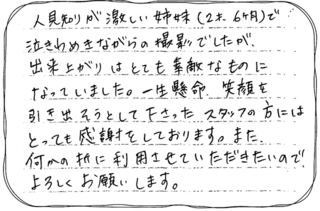 人見知りが激しい姉妹(2才、6ヶ月)で
泣きわめきながらの撮影でしたが、
出来上がりはとても素敵なものに
なっていました。一生懸命、笑顔を
引き出そうとして下さったスタッフの方には
とっても感謝をしております。また
何かの折に利用させていただきたいので
よろしくお願いします。